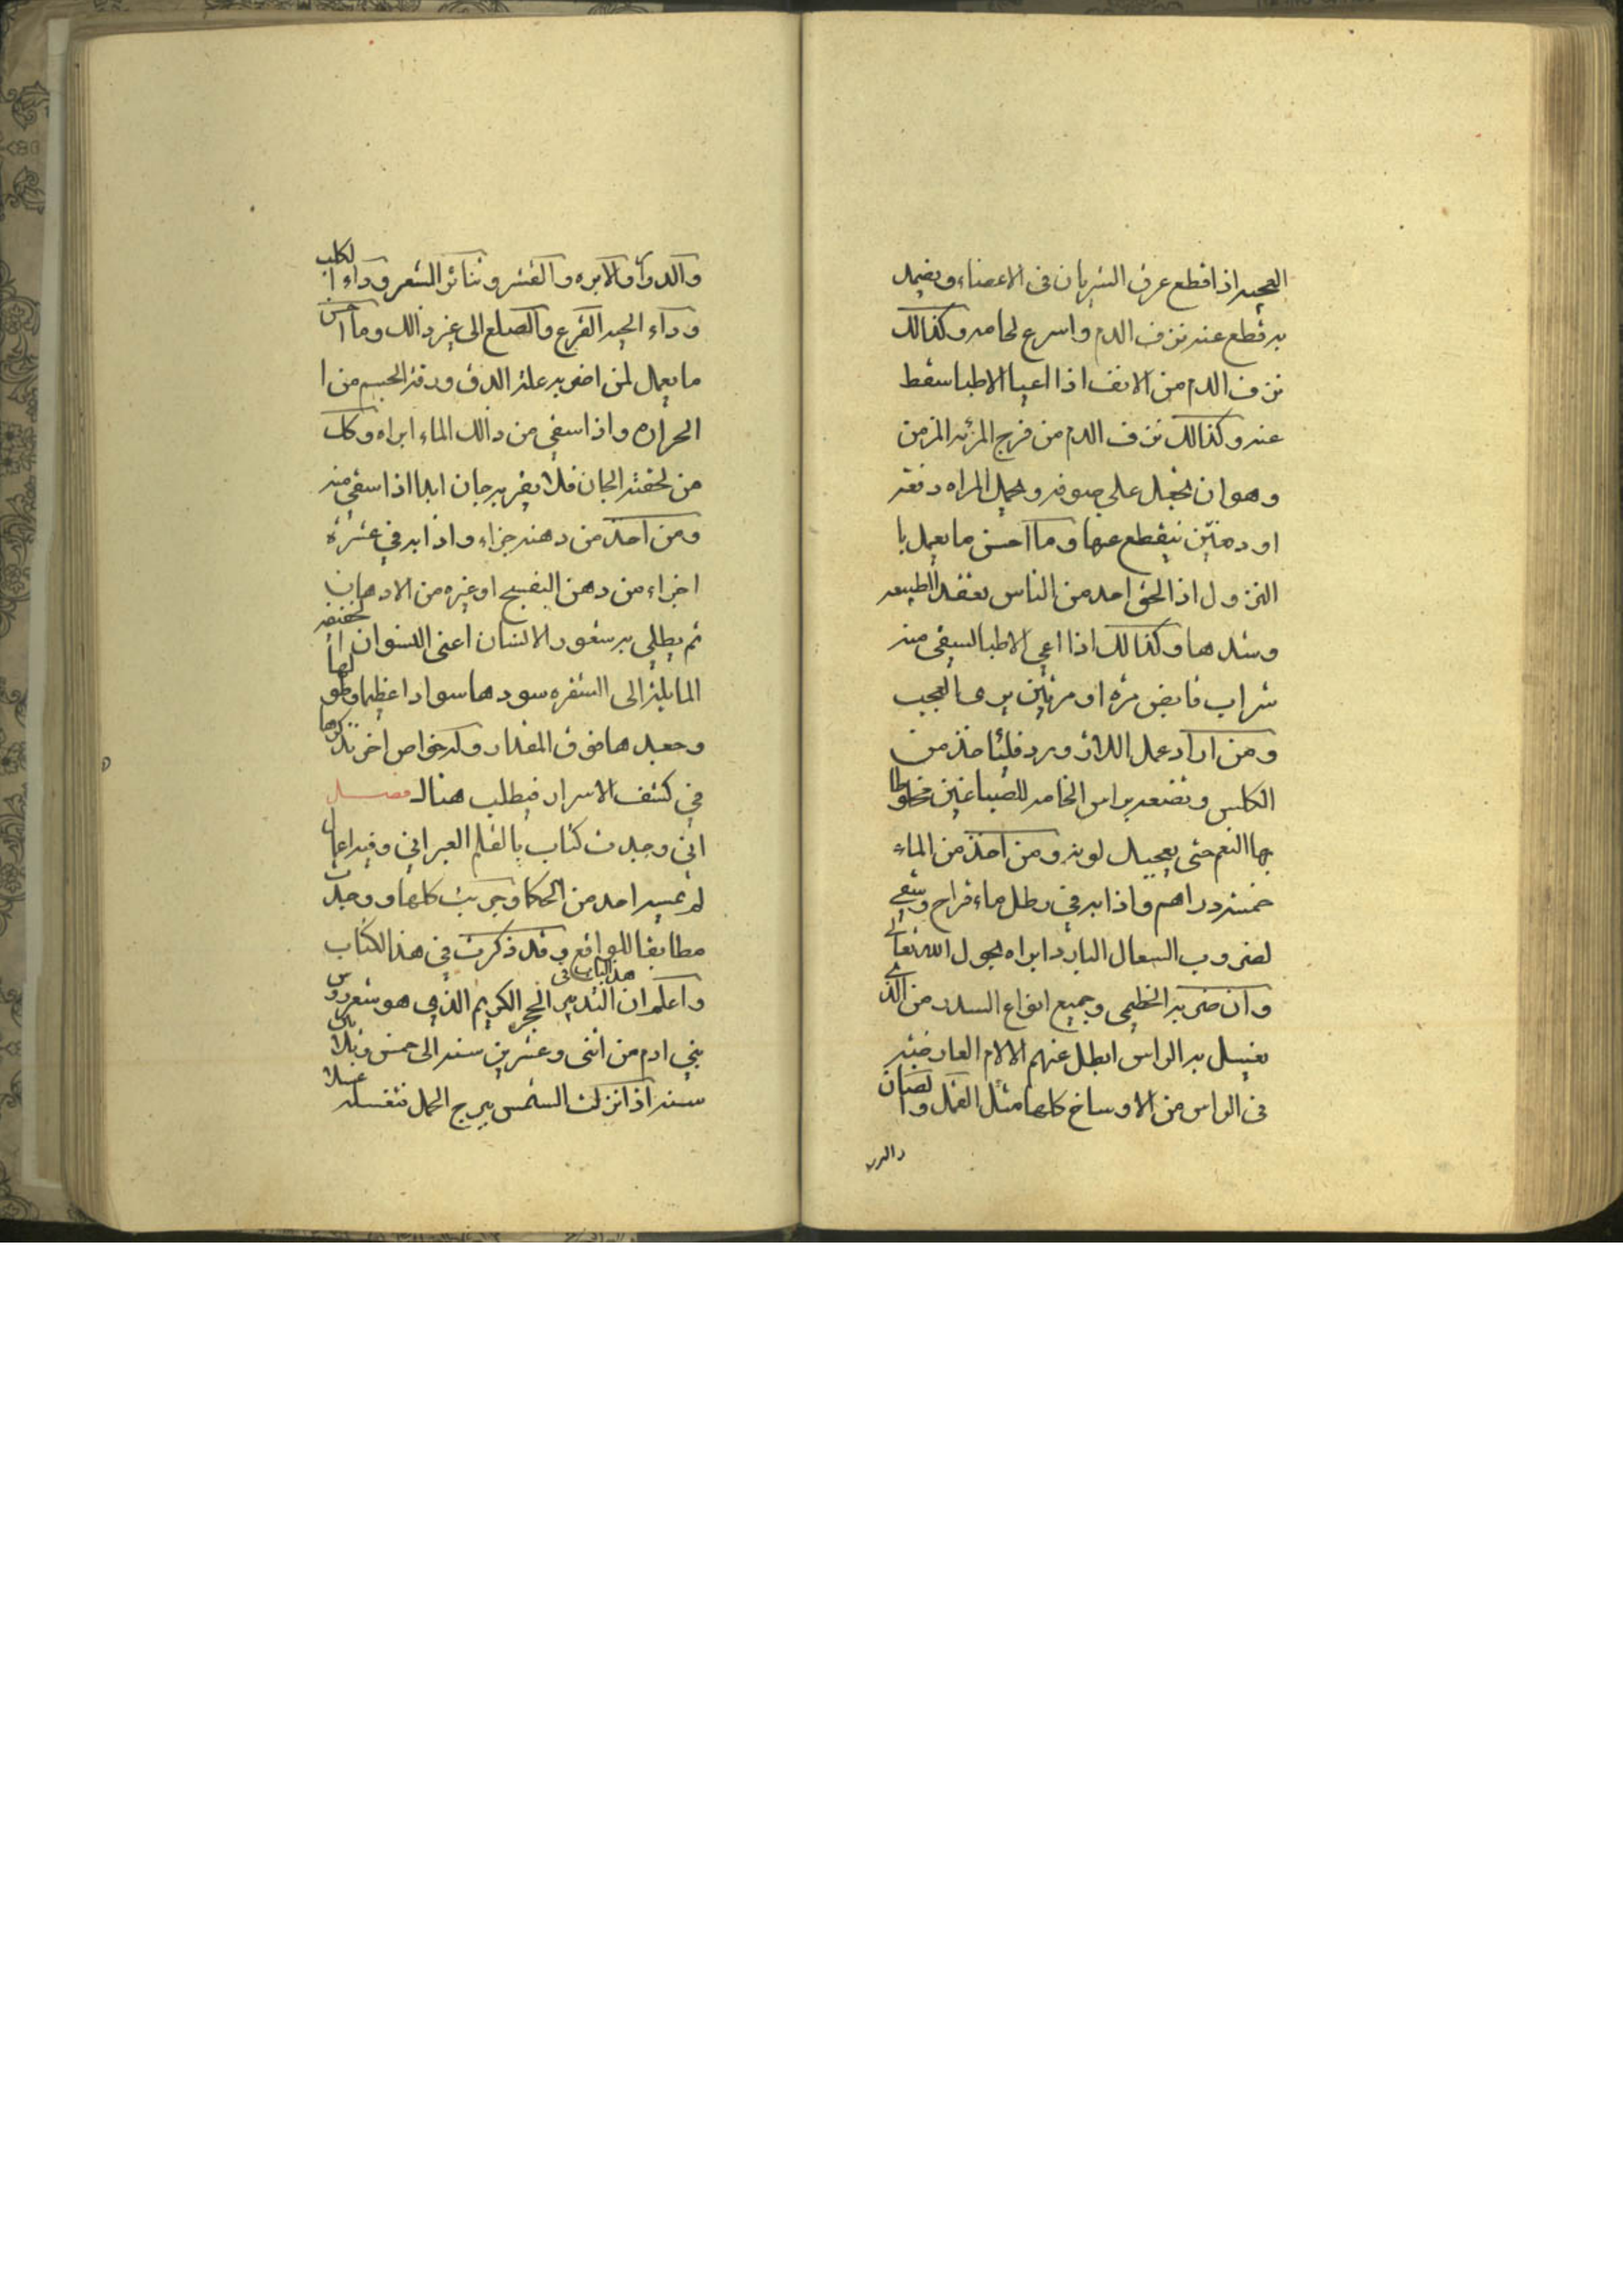 العجيبه اذا قطع عرق الشريان فى الاعضاء ويضمد
به قطع عنه نزف الدم واسرع لحامه وكذالك
نزف الدم من الانف اذا اعيا الاطبا سقط
عنه وكذالك نزف الدم من فرج المرئه المزمن
وهو ان يجعل على صوفه وتحمل المراه دفعة
او دفعتين ينقطع عنها وما احسن ما يعمل با
النزول اذا لحق احد من الناس يعقد الطبيعه
وشدها وكذالك اذا اعى الاطبا ليسقى منه
شراب قابض مره او مرتين يرى العجب
ومن اراد عمل اللازورد فليأخذ من
الكلس وتصعد براس الخامه للصباغين مخلوطا
بها النعم حتى يعجبك لونه ومن اخذ من الماء
خمسة دراهم واذابه في رطل ماء قراح وسقي
لضروب السعال البارد ابراه بحول الله تعالى
وان ضربه الخطمى وجميع انواع السدر من الذي
يغسل به الراس ابطل عنهم الالام العارضه
فى الراس من الاوساخ كلها مثل القمل والصبان
والدو
والدواء والابره والقشر وتناثر الشعر وداء الكلب
وداء الحيه القرع والصلع الى غير ذالك وما احسن
ما يعمل لمن اضر به علة الدق ودقة الجسم من ا
الحراره واذا سقي من ذالك الماء ابراه وكل
من لحقته الجان فلا يقربه جان ابدا اذا سقي منه
ومن اخذ من دهنه جزاء واذابه في عشرة
اجزاء من دهن البنفسج او غيره من الادهان
ثم يطلى به شعور الانسان اعنى النسوان الخفيفه
المايله الى الشقره سودها سوادا عظيما وطولها
وجعدها فوق المقدار وله خواص اخر نذكرها
في كشف الاسرار فيطلب هناك فصل
اني وجدت كتاب بالقلم العبراني وفيه اعمال
لم عمله احد من الحكما وجربت كلها ووجدت
مطابقا للواقع وقد ذكرت في هذا الكتاب
هذا الباب في
واعلم ان التدبير الحجر الكريم الذي هو شعر روس
بني ادم من اثنى وعشرين سنه الى خمس وثلاثين
سنه اذا نزلت الشمس ببرج الحمل فتغسله غسلا